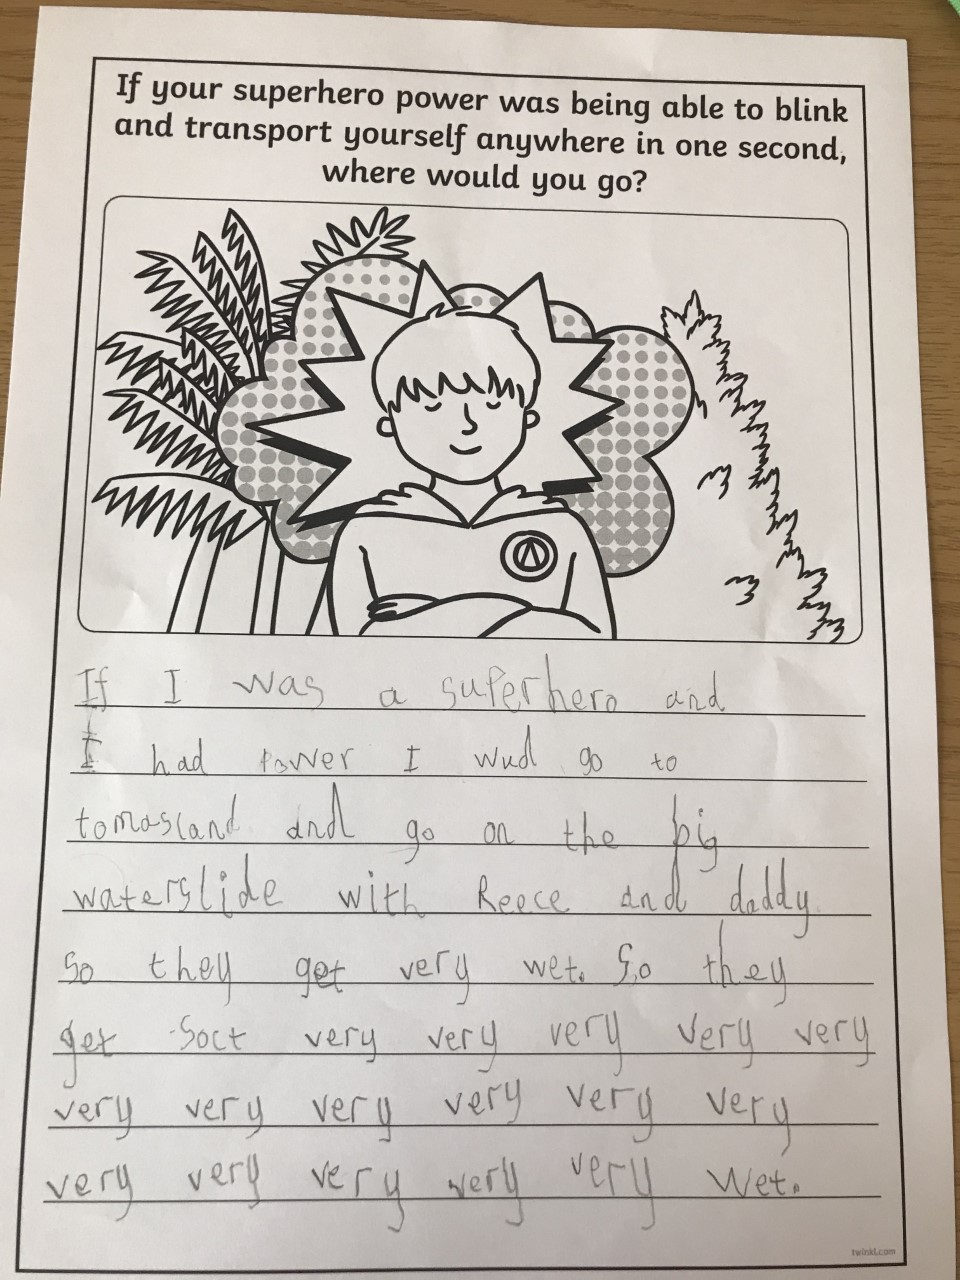 If your superhero power was being able to blink
and transport yourself anywhere in one second,
where would you go?
If I was a superhero and
I had power I wud go to
tomasland and go on the big
waterslide with Reece and daddy.
So they get very wet. So they
get soct very very very very very
very very very very very very
very very very very very wet.
twinkl.com